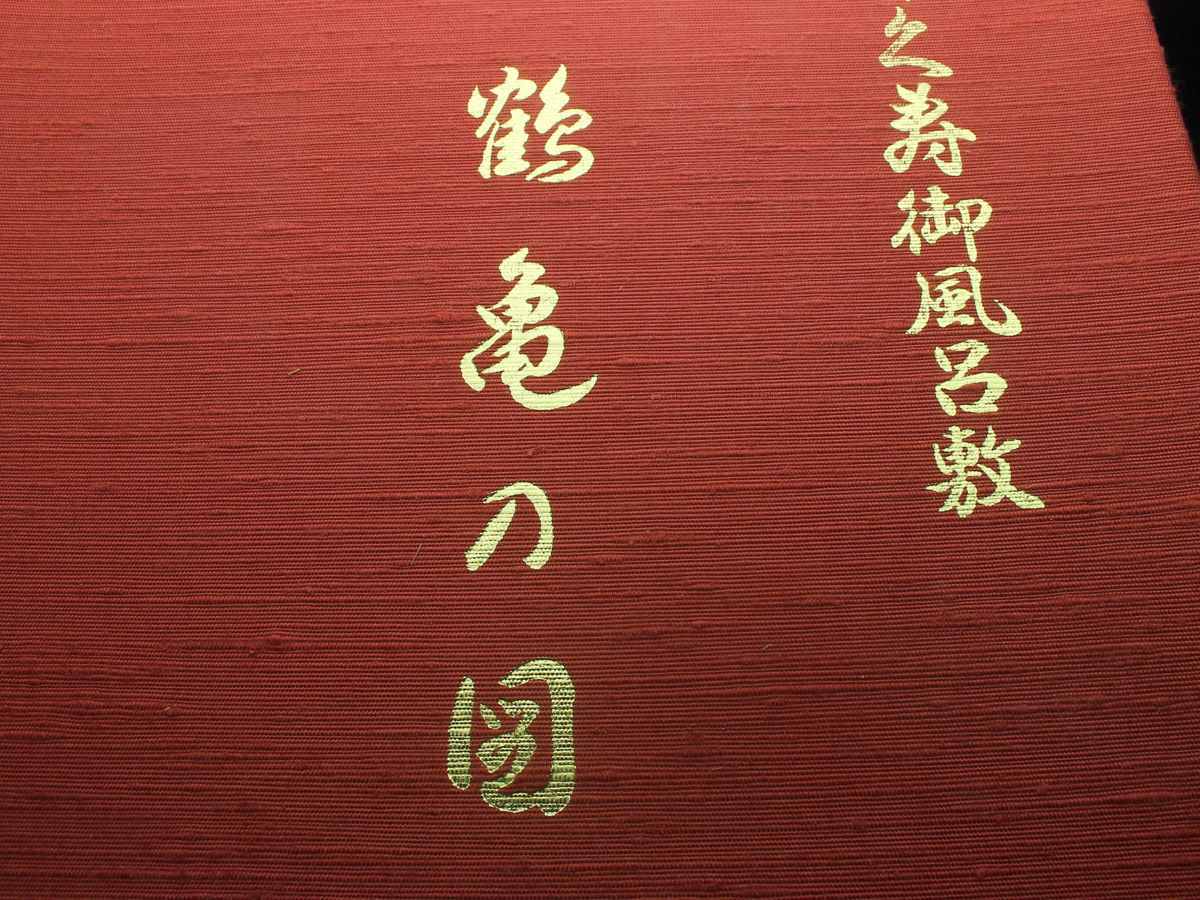 久寿御風呂敷
鶴亀乃図